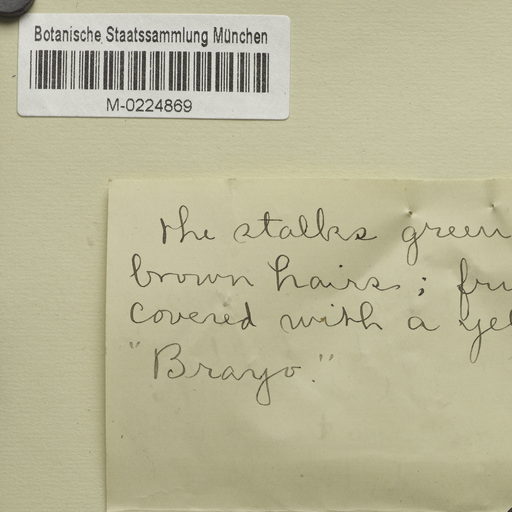 Botanische Staatssammlung München
M-0224869
the stalks green
brown hairs; fru
covered with a yel
"Brayo."